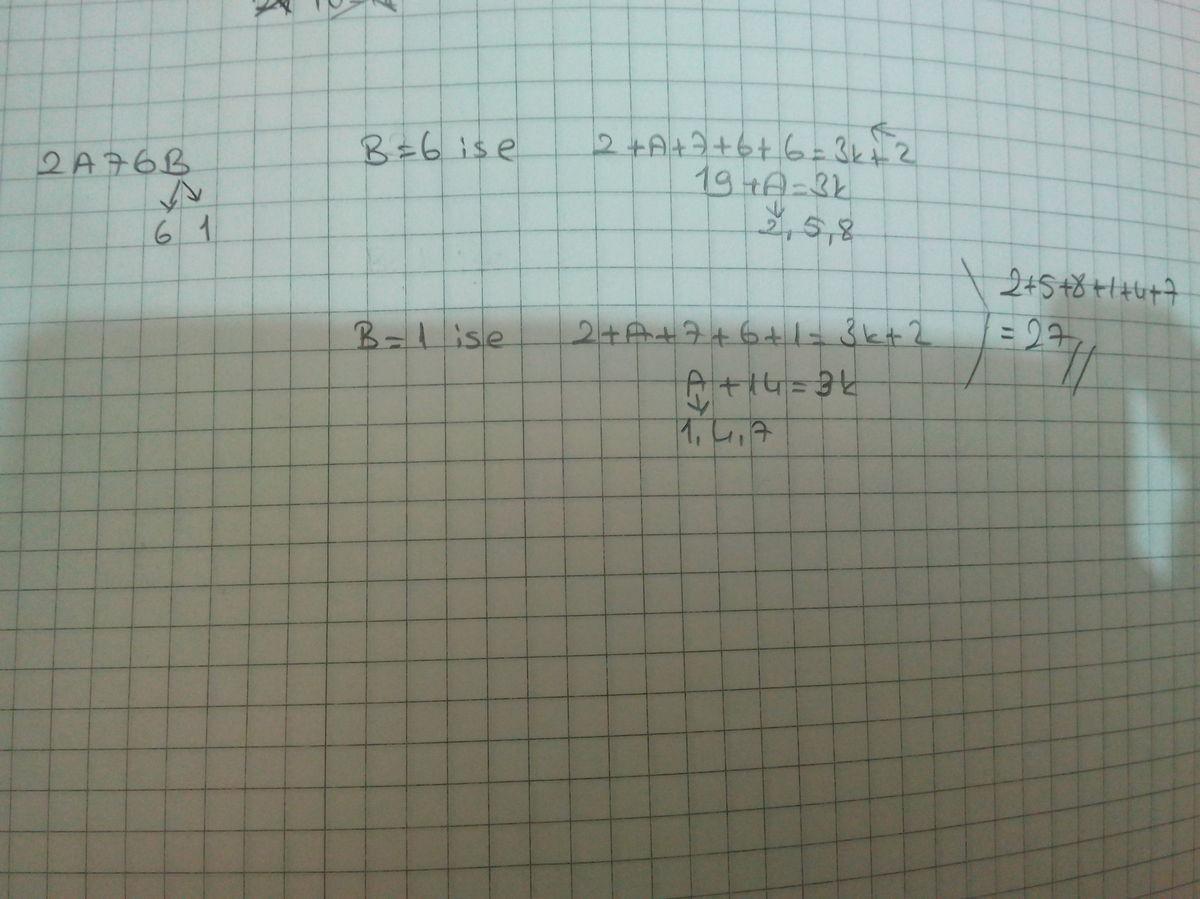 2A76B
6 1
B=6 ise 2+A+7+6+6=3k+2
19+A=3k
2,5,8
B=1 ise 2+A+7+6+1=3k+2
A+14=3k
1,4,7
2+5+8+1+4+7
=27